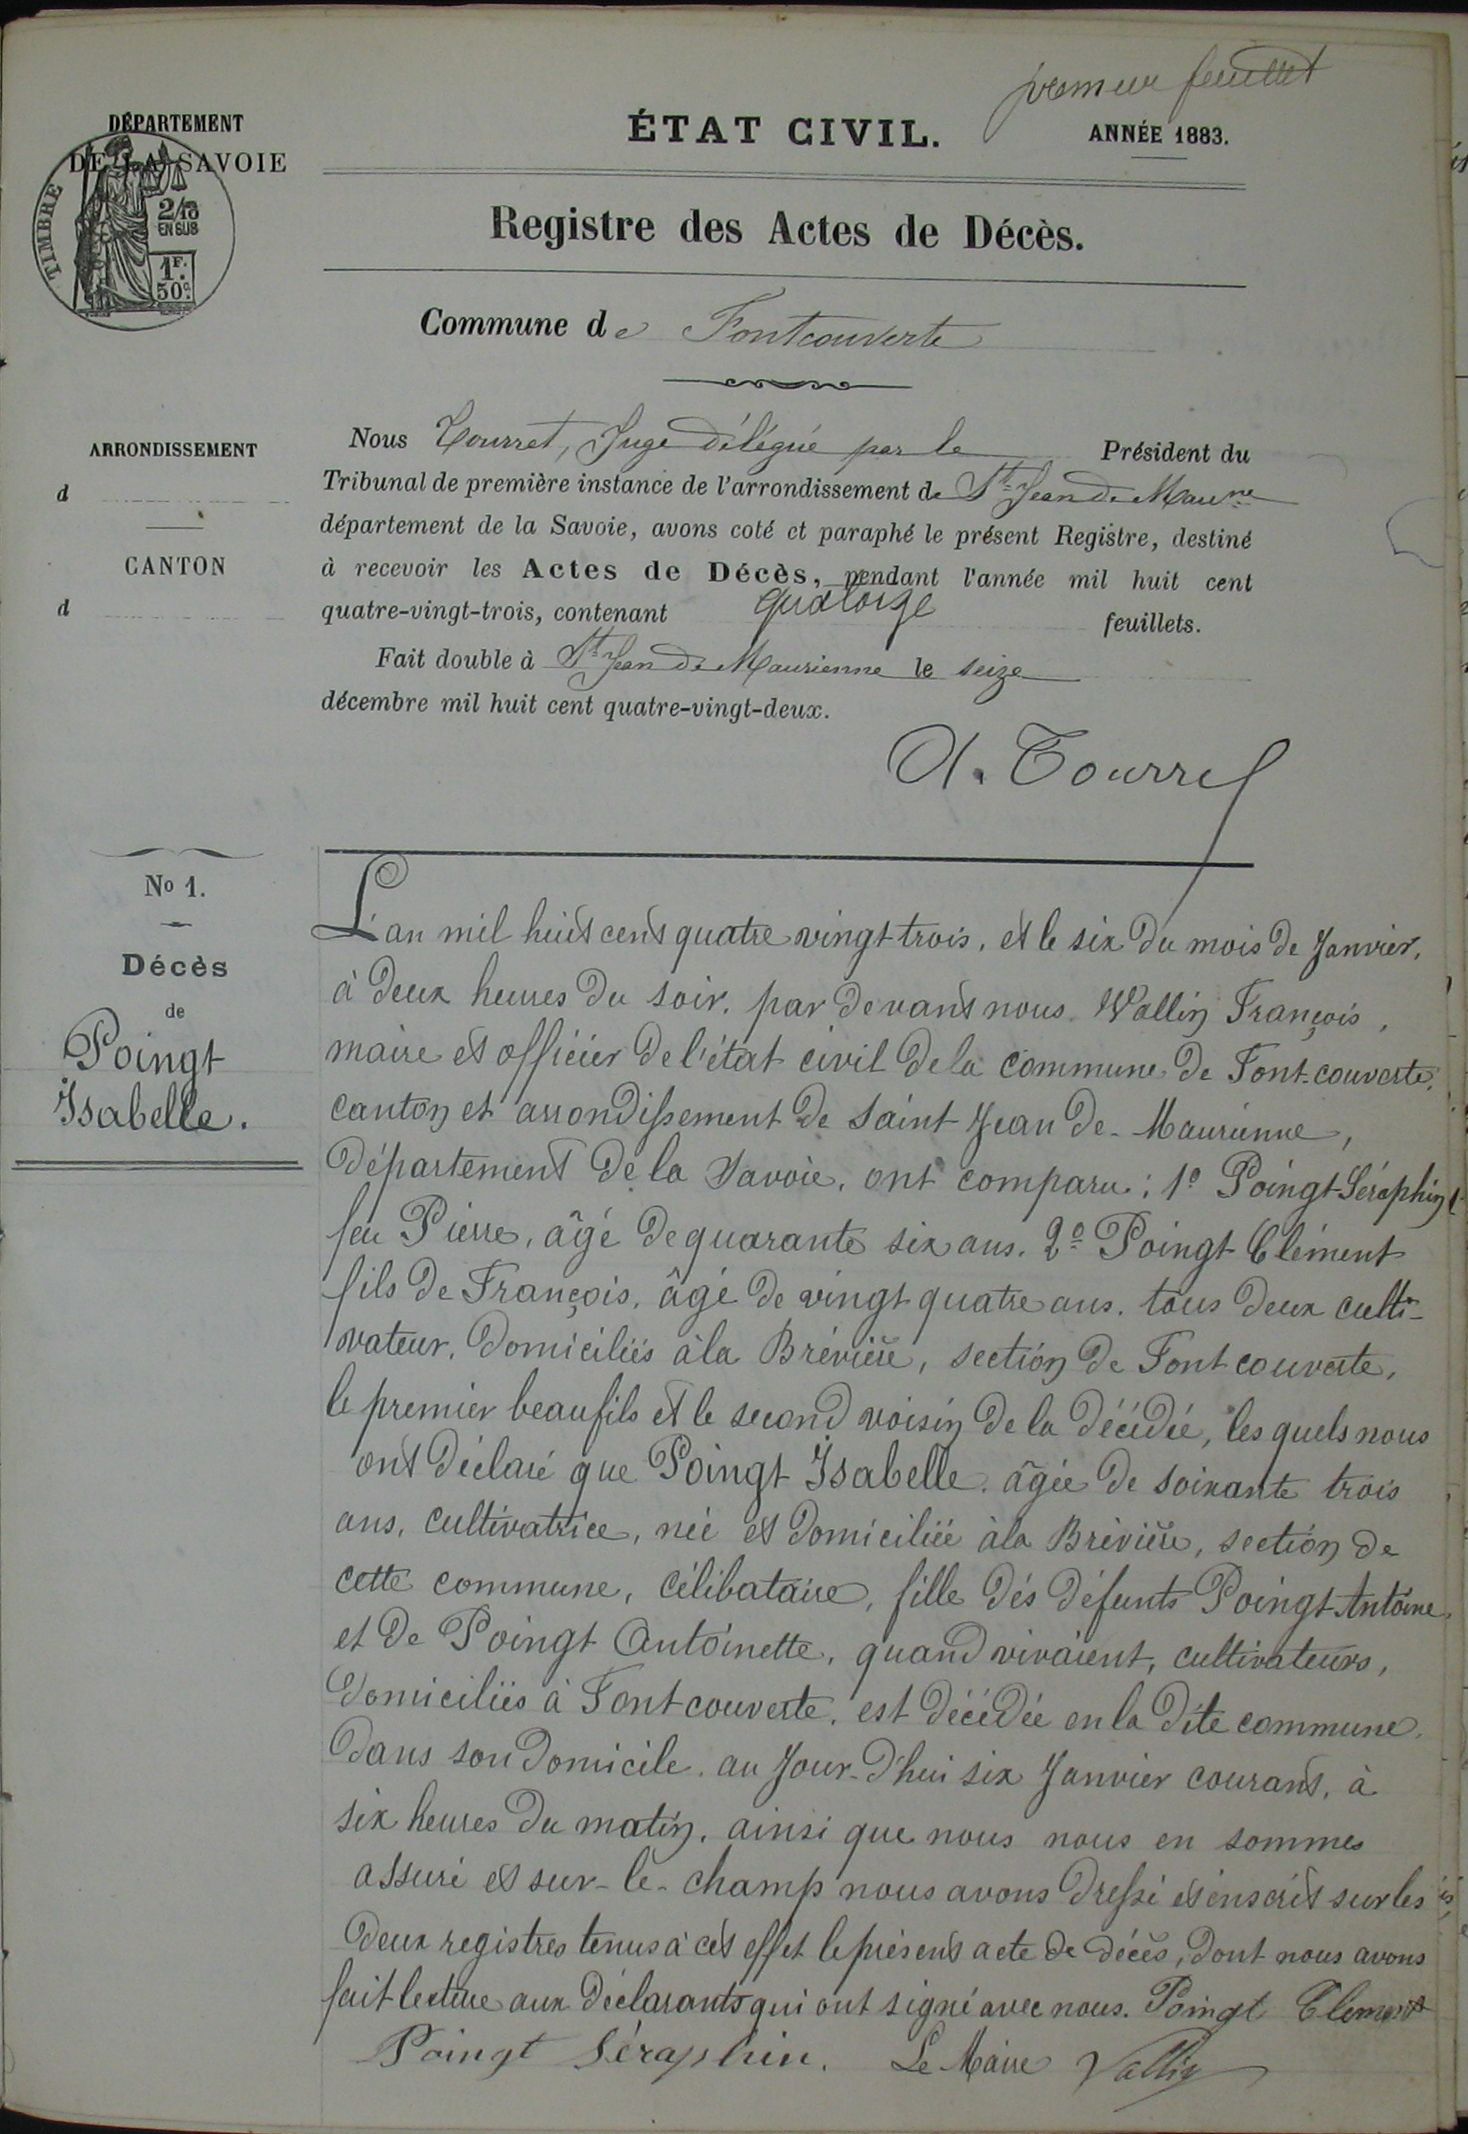 premier feuillet
DÉPARTEMENT
DE LA SAVOIE
TIMBRE
2/10
EN SUS
1F.
50c.
ÉTAT CIVIL.
ANNÉE 1883.
Registre des Actes de Décès.
Commune de Fontcouverte
ARRONDISSEMENT
d
CANTON
d
Nous Tourret, Juge délégué par le Président du
Tribunal de première instance de l'arrondissement de St Jean de Maurne
département de la Savoie, avons coté et paraphé le présent Registre, destiné
à recevoir les Actes de Décès, pendant l'année mil huit cent
quatre-vingt-trois, contenant quatorze feuillets.
Fait double à St Jean de Maurienne le seize
décembre mil huit cent quatre-vingt-deux.
A. Tourret
No 1.
Décès
de
Poingt
Isabelle.
L'an mil huit cent quatre vingt trois, et le six du mois de Janvier,
à deux heures du soir, par devant nous Wallin François,
maire et officier de l'état civil de la commune de Font-couverte,
canton et arrondissement de Saint Jean de-Maurienne,
département de la Savoie, ont comparu: 1o Poingt Séraphin
feu Pierre, âgé de quarante six ans. 2o Poingt Clément
fils de François, âgé de vingt quatre ans. tous deux culti-
vateur, domiciliés à la Brévière, section de Font couverte,
le premier beau fils et le second voisin de la décédée, les quels nous
ont déclaré que Poingt Isabelle, âgée de soixante trois
ans, cultivatrice, née et domiciliée à la Brévière, section de
cette commune, célibataire, fille dés défunts Poingt Antoine
et de Poingt Antoinette, quand vivaient, cultivateurs,
domiciliés à Font couverte, est décédée en la dite commune
dans son domicile, au Jour-d'hui six Janvier courant, à
six heures du matin, ainsi que nous nous en sommes
assuré et sur-le-champ nous avons dressé et inscrit sur les
deux registres tenus à cet effet le présent acte de décès, dont nous avons
fait lecture aux déclarants qui ont signé avec nous. Poingt Clement
Poingt Séraphin. Le Maire Vallin